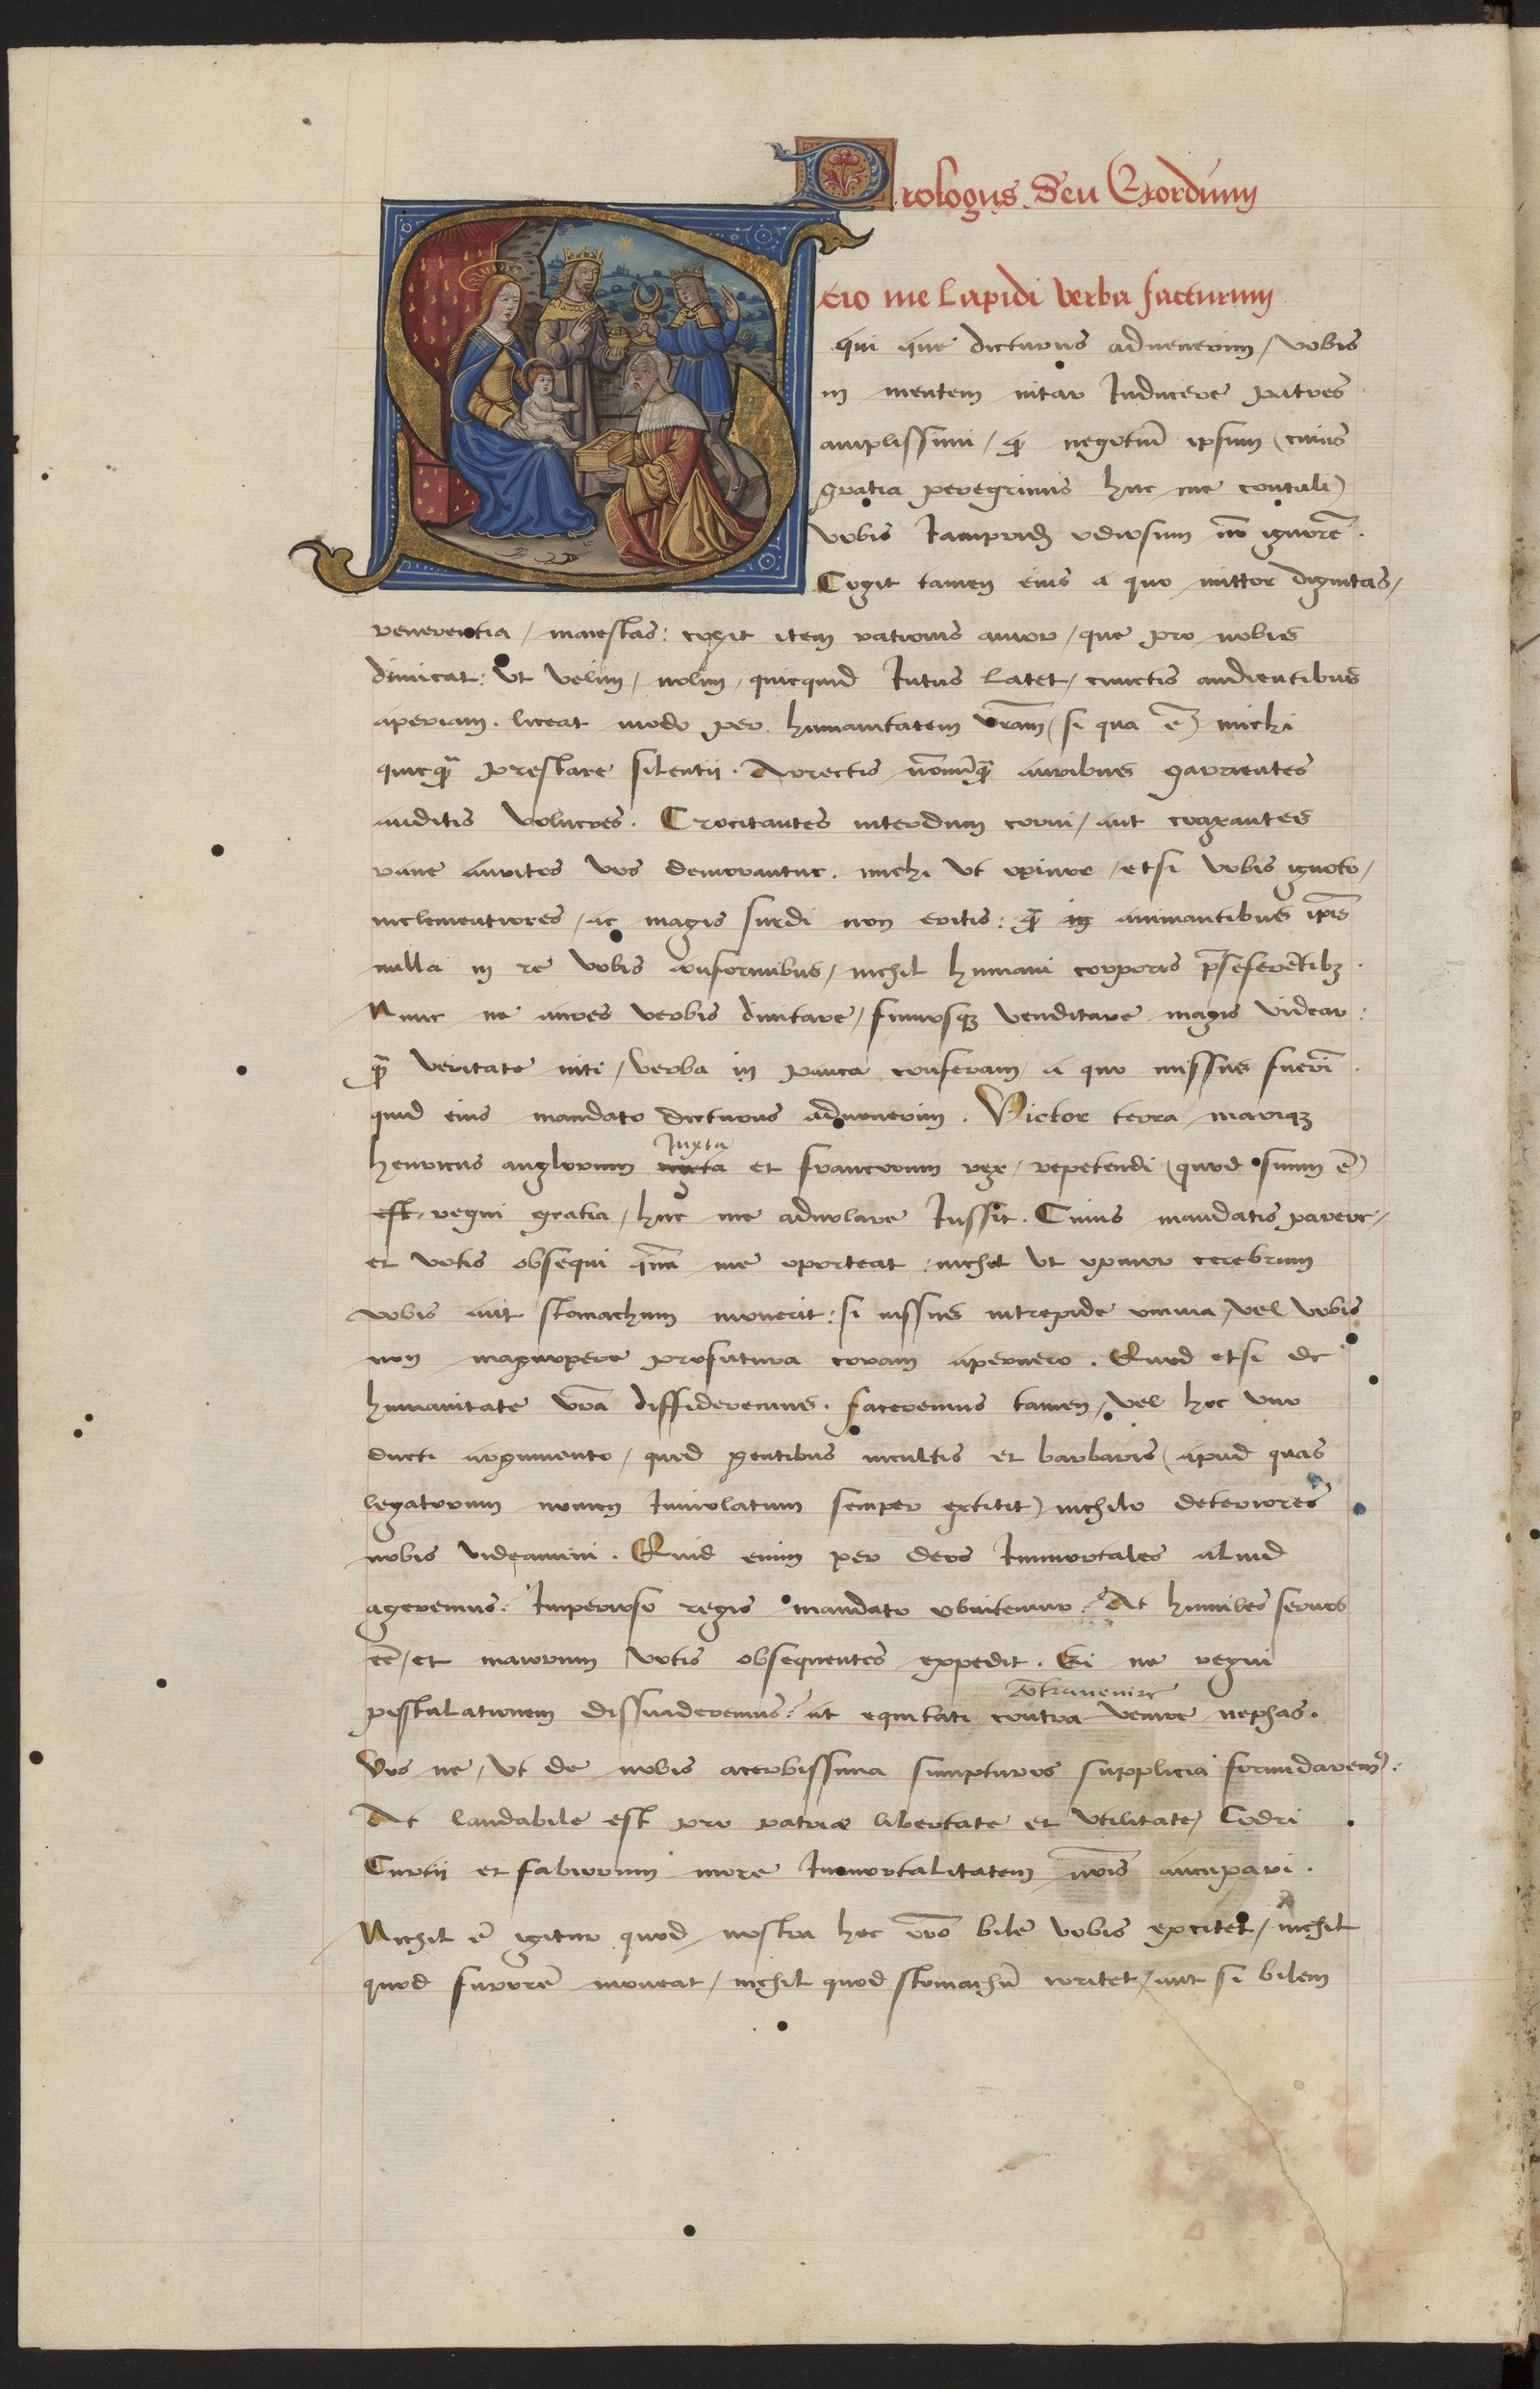 Prologus Seu Exordium
Scio me Lapidi verba facturum
qui que dicturus aduenerim / vobis
in mentem nitar Inducere patres
amplissimi / qͣ negotiū ipsum (cuius
gratia peregrinus huc me contuli)
vobis Iampridē odiosum nō ignorē .
Cogit tamen eius a quo mittor dignitas /
reuerentia / maiestas : cogit item rationis amor / que pro nobis
dimicat : vt velim / nolim / quicquid Intus Latet / cunctis audientibus
aperiam . liceat modo per humanitatem vrām (si qua ē) michi
quicqͣ prestare silentii . Arrectis nōnūqͣ auribus garrientes
auditis volucres . Crocitantes interdum corui / aut coaxantes
rane auritos vos demorantur . michi vt opinor / etsi vobis ignoto /
inclementiores / ac magis surdi non eritis : qͣ in animantibus ip̄is
nulla in re vobis conformibus / nichil humani corporis p̄seferētibꝫ .
Nunc ne aures verbis dimitare / fumosqꝫ venditare magis videar :
qͣ veritate niti / verba in pauca conferam / a quo missus fuerī .
quid eius mandato dicturus aduenerim . Victor terra mariqꝫ
Iuxta
henricus anglorum iuxta et francorum rex / repetendi (quod suum ē)
est regni gratia / huc me aduolare Iussit . Cuius mandatis parere /
et votis obsequi qm̄ me oporteat / nichil vt opinor cerebrum
vobis aut stomachum mouerit : si iussus intrepide omnia / vel vobis
non magnopere profutura coram aperuero . Quod etsi de
humanitate vrā diffideremus . faceremus tamen / vel hoc vno
ducti argumento / quod gentibus incultis et barbaris (apud quas
legatorum nomen Inuiolatum semper extitit) nichilo deteriores
nobis videamini . Quid enim per deos Immortales aliud
ageremus . Imperioso regis mandato obnitemur . At humiles seruos
eē / et maiorum votis obsequentes expedit . Ei ne regni
contrauenire
postulationem dissuaderemus : at equitati contra venire nephas .
Vos ne / vt de nobis acerbissima sumpturos supplicia formidarem⁹ :
At laudabile est pro patrie libertate et vtilitate / Codri
Curtii et fabiorum more Inmortalitatem nōis aucupari .
Nichil ē igitur quod nostra hec orō bilē vobis excitet / nichil
quod furorē moueat / nichil quod stomachū irritet / aut si bilem